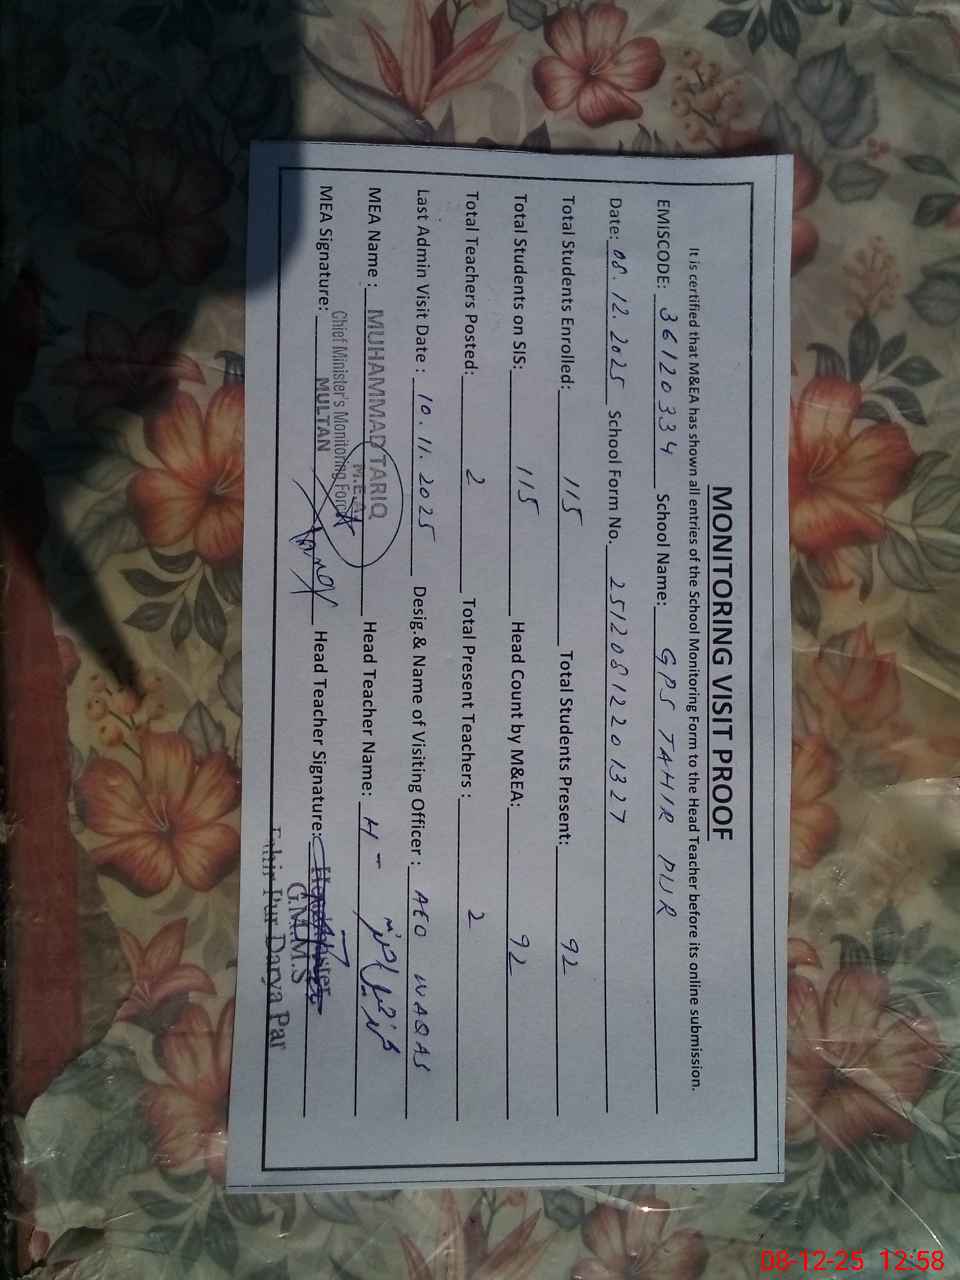 MONITORING VISIT PROOF
It is certified that M&EA has shown all entries of the School Monitoring Form to the Head Teacher before its online submission.
EMISCODE: 36120334 School Name: GPS TAHIR PUR
Date: 08.12.2025 School Form No. 25120812201327
Total Students Enrolled: 115 Total Students Present: 92
Total Students on SIS: 115 Head Count by M&EA: 92
Total Teachers Posted: 2 Total Present Teachers : 2
Last Admin Visit Date : 10.11.2025 Desig.& Name of Visiting Officer : AEO WAQAS
MEA Name : MUHAMMAD TARIQ Head Teacher Name: H
M.E.A
Chief Minister's Monitoring Force
MULTAN
MEA Signature: Head Teacher Signature:
G.M.M.S
Tahir Pur Darya Par
08-12-25 12:58